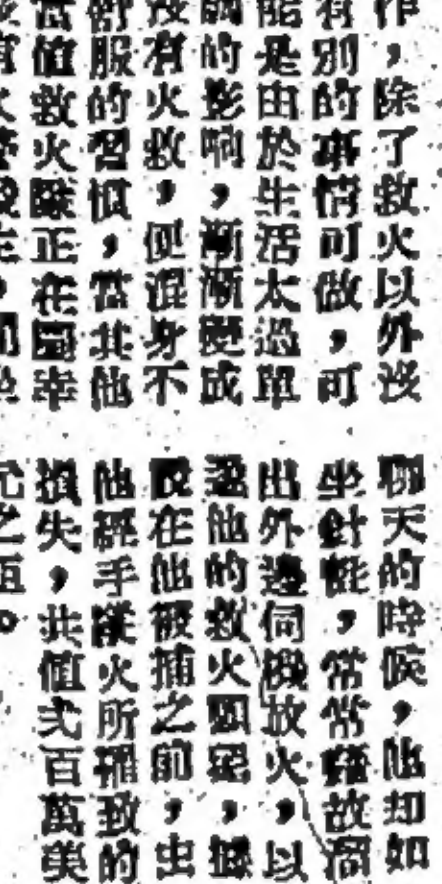 作，除了救火以外沒
有別的事情可做，可
能是由於生活太過單
調的影响，漸漸變成
沒有火救，便混身不
舒服的習慣，當其他
當值救火隊正在圍幸
聊天的時候，他却如
坐針氈，常常藉故溜
出外邊伺機放火，以
逞他的救火癮，據
說在他被捕之前，由
他經手縱火所罹致的
損失，共值弍百萬美
元之巨。